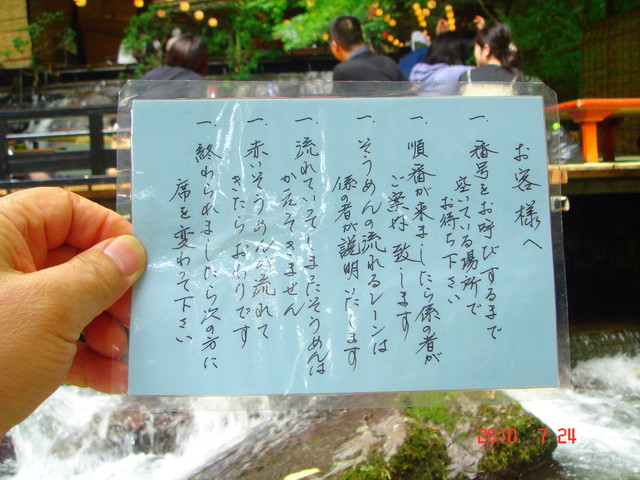 お客様へ
一、番号をお呼びするまで
空いている場所で
お待ち下さい
一、順番が来ましたら係の者が
ご案内致します
一、そうめんの流れるレーンは
係の者が説明いたします
一、流れていってしまったそうめんは
かえってきません
一、赤いそうめんが流れて
きたらおわりです
一、終わられましたら次の方に
席を変わて下さい
2010 7 24